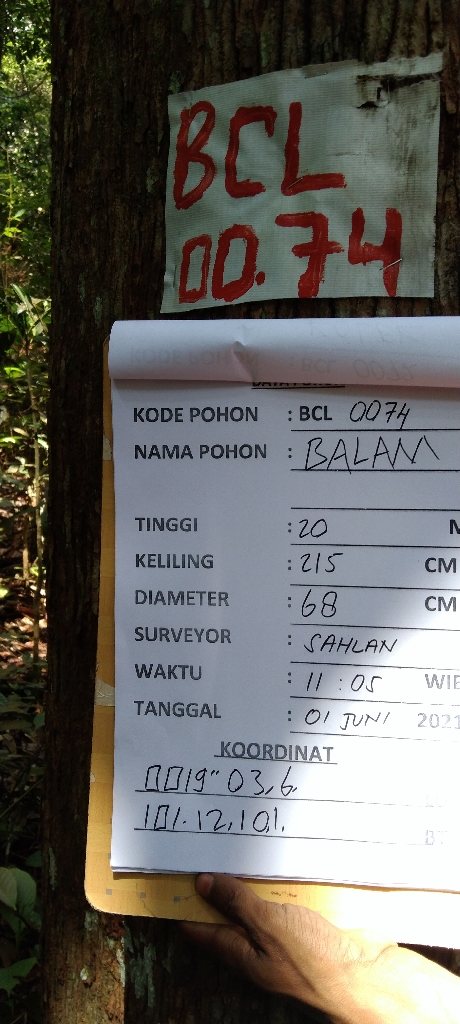 BCL
00.74
KODE POHON : BCL 0074
NAMA POHON : BALAM
TINGGI : 20 M
KELILING : 215 CM
DIAMETER : 68 CM
SURVEYOR : SAHLAN
WAKTU : 11 : 05 WIB
TANGGAL : 01 JUNI 2021
KOORDINAT
0019" 03,6
101.12,101.
BT